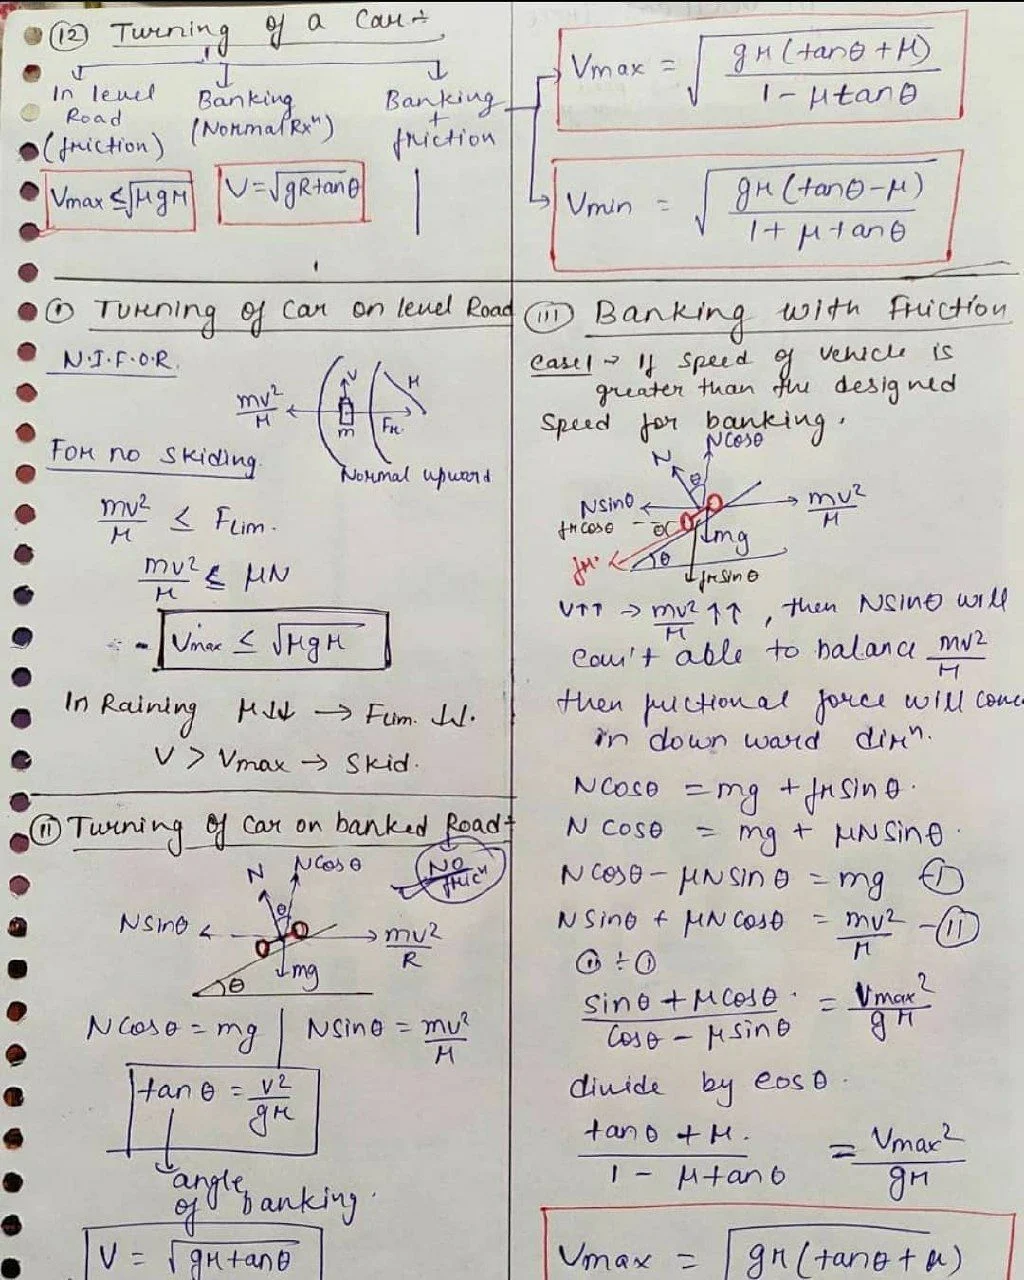 (12) Turning of a Car :-
In level Road (friction)
Vmax ≤ √μgr
Banking (Normal Rxⁿ)
V = √gRtanθ
Banking + friction
Vmax = √(gr(tanθ + μ) / 1 - μtanθ)
Vmin = √(gr(tanθ - μ) / 1 + μtanθ)
(i) Turning of Car on level Road
N.I.F.O.R.
mv²/r
v
m
r
Fr.
Normal upward
For no skiding
mv²/r ≤ Flim.
mv²/r ≤ μN
Vmax ≤ √μgr
In Raining μ↓↓ → Flim. ↓↓.
V > Vmax → Skid.
(ii) Turning of Car on banked Road :-
NO fricⁿ
N
Ncosθ
θ
Nsinθ
mv²/R
mg
θ
Ncosθ = mg | Nsinθ = mv²/r
tanθ = v²/gr
angle of banking.
V = √grtanθ
(iii) Banking with Friction
Case1 → If speed of vehicle is
greater than the designed
speed for banking.
Ncosθ
N
θ
Nsinθ
mv²/r
frcosθ
mg
θ
fr.
frsinθ
V↑↑ → mv²/r ↑↑, then Nsinθ will
can't able to balance mv²/r
then frictional force will come
in down ward dirⁿ.
Ncosθ = mg + frsinθ.
N cosθ = mg + μNsinθ.
Ncosθ - μNsinθ = mg -(i)
Nsinθ + μNcosθ = mv²/r -(ii)
(ii) ÷ (i)
sinθ + μcosθ. / cosθ - μsinθ = Vmax²/gr
divide by cosθ.
tanθ + μ. / 1 - μtanθ = Vmax²/gr
Vmax = √gr(tanθ + μ)